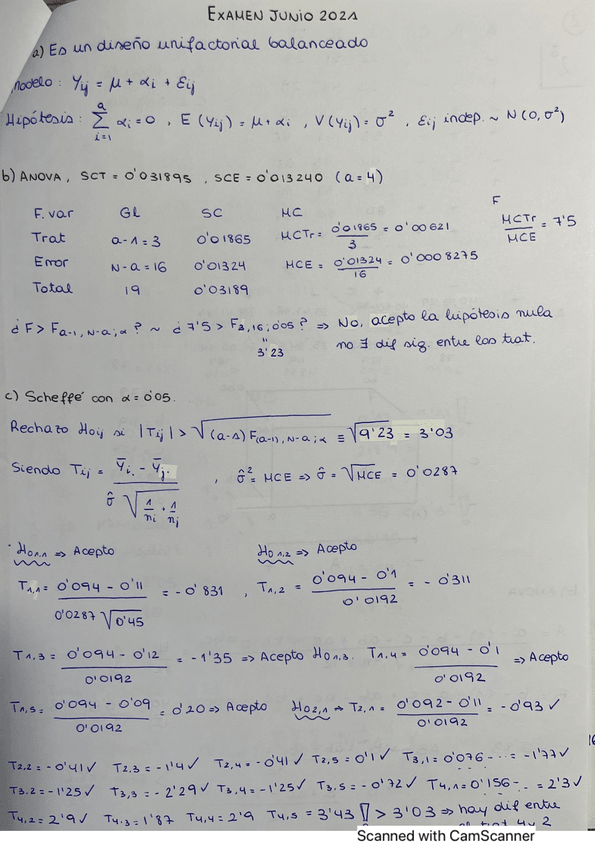 EXAMEN JUNIO 2021
a) Es un diseño unifactorial balanceado
Modelo: Yij = μ + αi + εij
Hipótesis: Σ(i=1, a) αi = 0, E(Yij) = μ + αi, V(Yij) = σ², εij indep. ~ N(0, σ²)
b) ANOVA, SCT = 0'031895, SCE = 0'013240 (a = 4)
F. var GL SC MC F
Trat a-1 = 3 0'01865 MCTr = 0'01865/3 = 0'00621 MCTr/MCE = 7'5
Error N-a = 16 0'01324 MCE = 0'01324/16 = 0'0008275
Total 19 0'03189
¿F > Fa-1, N-a; α? ~ ¿7'5 > F3,16; 0'05? ⇒ No, acepto la hipótesis nula
" 3'23
no ∃ dif sig. entre los trat.
c) Scheffé con α = 0'05.
Rechazo Hoij si |Tij| > √((a-1) F(a-1), N-a; α) ≡ √9'23 = 3'03
Siendo Tij = (Ȳi. - Ȳj.) / (σ̂ √(1/ni · 1/nj)), σ̂² = MCE ⇒ σ̂ = √MCE = 0'0287
Ho1,1 ⇒ Acepto Ho1,2 ⇒ Acepto
T1,1 = (0'094 - 0'11) / (0'0287 √0'45) = -0'831, T1,2 = (0'094 - 0'1) / 0'0192 = -0'311
T1,3 = (0'094 - 0'12) / 0'0192 = -1'35 ⇒ Acepto Ho1,3. T1,4 = (0'094 - 0'1) / 0'0192 ⇒ Acepto
T1,5 = (0'094 - 0'09) / 0'0192 = 0'20 ⇒ Acepto Ho2,1 ⇒ T2,1 = (0'092 - 0'11) / 0'0192 = -0'93 ✓
T2,2 = -0'41 ✓ T2,3 = -1'4 ✓ T2,4 = -0'41 ✓ T2,5 = 0'1 ✓ T3,1 = 0'076 - ... = -1'77 ✓
T3,2 = -1'25 ✓ T3,3 = -2'29 ✓ T3,4 = -1'25 ✓ T3,5 = -0'72 ✓ T4,1 = 0'156 - ... = 2'3 ✓
T4,2 = 2'9 ✓ T4,3 = 1'87 T4,4 = 2'9 T4,5 = 3'43 ! > 3'03 ⇒ hay dif entre
4 y 2
16
Scanned with CamScanner